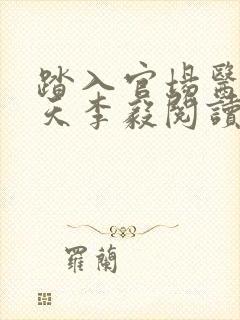 踏入官場醫
天李毅閱讀
羅蘭